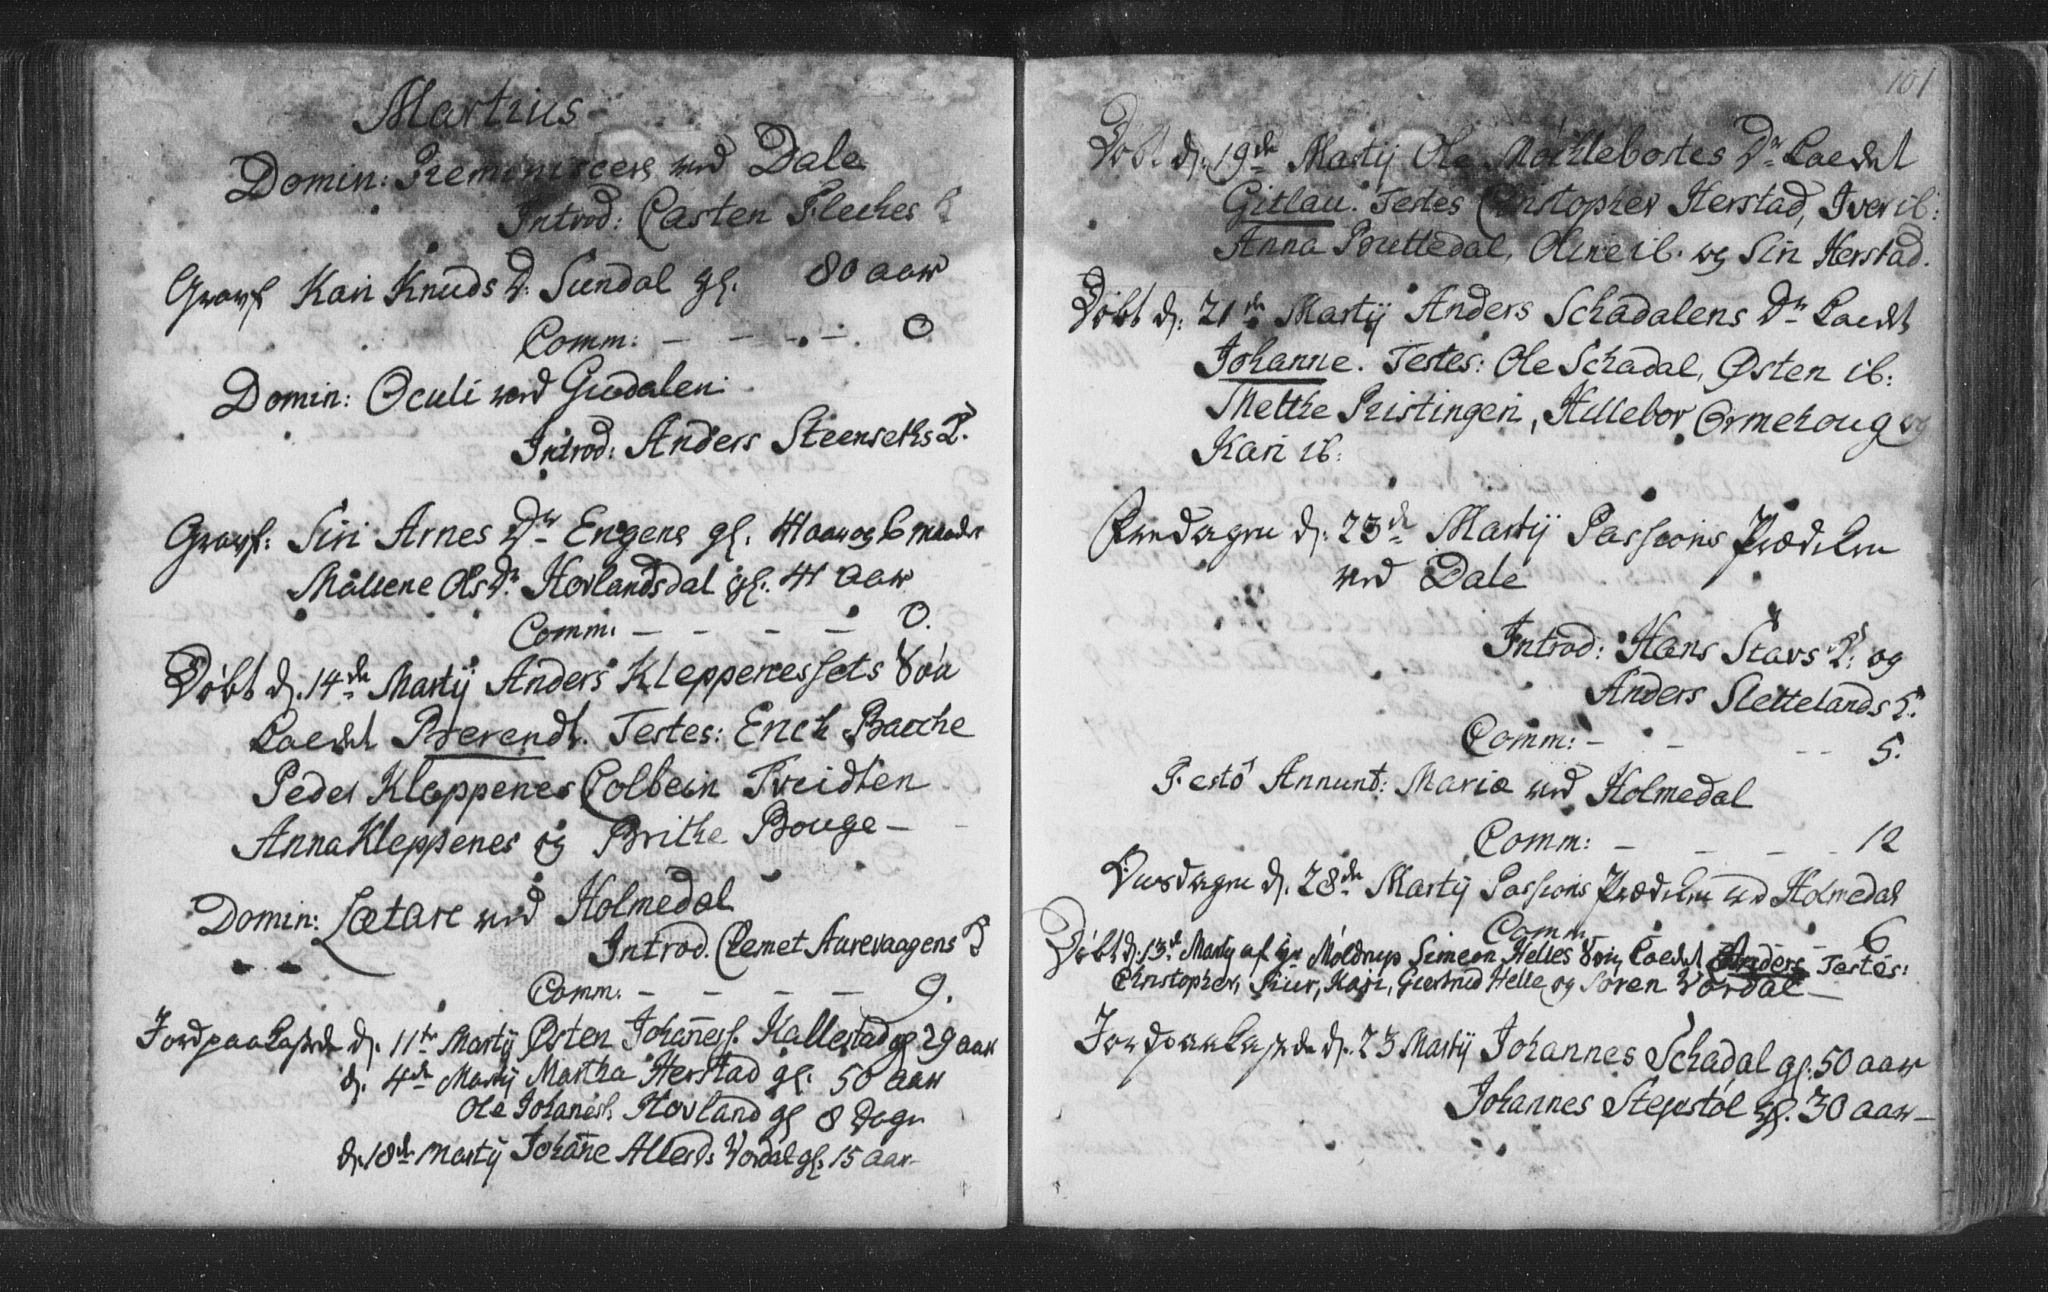 Martius
Domin: Reminiscere ved Dale
Introd: Casten Fleches
Gravf Kari Knuds D: Sundal gl. 80 aar
Comm: — — — — 0
Domin: Oculi ved Guddalen
Introd: Anders Steensets
Gravf: Siri Arnes Dr Engene gl. 41 aar og 6 maader
Mallene Ols Dr Hovlandsdal gl. 41 aar
Comm: — — — — 0.
Døbt d. 14de Martij Anders Kleppenessets Søn
Kaldet Berendt. Testes: Erich Bache
Peder Kleppenes Colbein Tveidten
Anna Kleppenes og Brithe Bouge —
Domin: Lætare ved Holmedal
Introd. Clemet Aarevaagens
Comm: — — — — 9.
Jordpaakastede d. 11te Martij Østen Johanness. Kallestad gl 29 aar
d. 4de Martij Martha Herstad gl. 50 aar
Ole Johaness. Hovland gl 8 dage
d. 18de Martij Johanne Allerds Vordal gl. 15 aar
101
Døbt d. 19de Martij Ole Mochlebostes Dr Kaldet
Gitlau. Testes Christopher Herstad, Iver ib:
Anna Buttedal, Oline ib. og Siri Herstad.
Døbt d. 21de Martij Anders Schadalens Dr Kaldet
Johanne. Testes: Ole Schadal, Østen ib:
Metthe Ristingen, Hillebor Ormehoug og
Kari ib:
Fredagen d. 23de Martij Passions Prædiken
ved Dale
Introd: Hans Stavs og
Anders Slettelands
Comm: — — — — 5.
Festo Annunt: Mariæ ved Holmedal
Comm: — — — — 12
Onsdagen d. 28de Martij Passions Prædiken ved Holmedal
Comm — 6
Døbt d. 13de Martij af Hr Moldrup Simeon Helles Søn Kaldet Anders Testes:
Christopher, Siur, Kari, Giertrud Helle og Søren Vordal —
Jordpaakastede d. 23 Martij Johannes Schadal gl. 50 aar
Johannes Stepstøl gl. 30 aar —